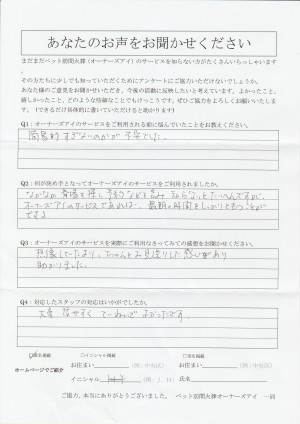 あなたのお声をお聞かせください
まだまだペット訪問火葬（オーナーズアイ）のサービスを知らない方がたくさんいらっしゃいます。
その方たちに少しでも知っていただくためにアンケートにご協力いただけないでしょうか。
あなた様のご意見をお聞かせいただき、今後の活動に反映したいと考えています。よかったこと、
嬉しかったこと、どのような些細なことでもけっこうです。ぜひご協力をよろしくお願いいたします。
（できるだけ具体的に書いていただけると助かります）
Q1：オーナーズアイのサービスをご利用される前に悩んでいたことをお教えください。
簡易的すぎないのかが不安でした。
Q2：何が決め手となってオーナーズアイのサービスをご利用されましたか。
オーナーズアイのサービスであれば、最期の時間をしっかりともつことが
できる
Q3：オーナーズアイのサービスを実際にご利用なさってみての感想をお聞かせください。
想像していたより、ちゃんとお見送りした感じがあり
助かりました。
Q4：対応したスタッフの対応はいかがでしたか。
大変 話やすく ていねいで よかったです。
匿名掲載 □イニシャル掲載 □実名掲載
お住まい （例：中央区） お住まい （例：中央区）
ホームページでご紹介
イニシャル （例：J．H） 氏名
ご協力、本当にありがとうございました。 ペット訪問火葬オーナーズアイ 一同